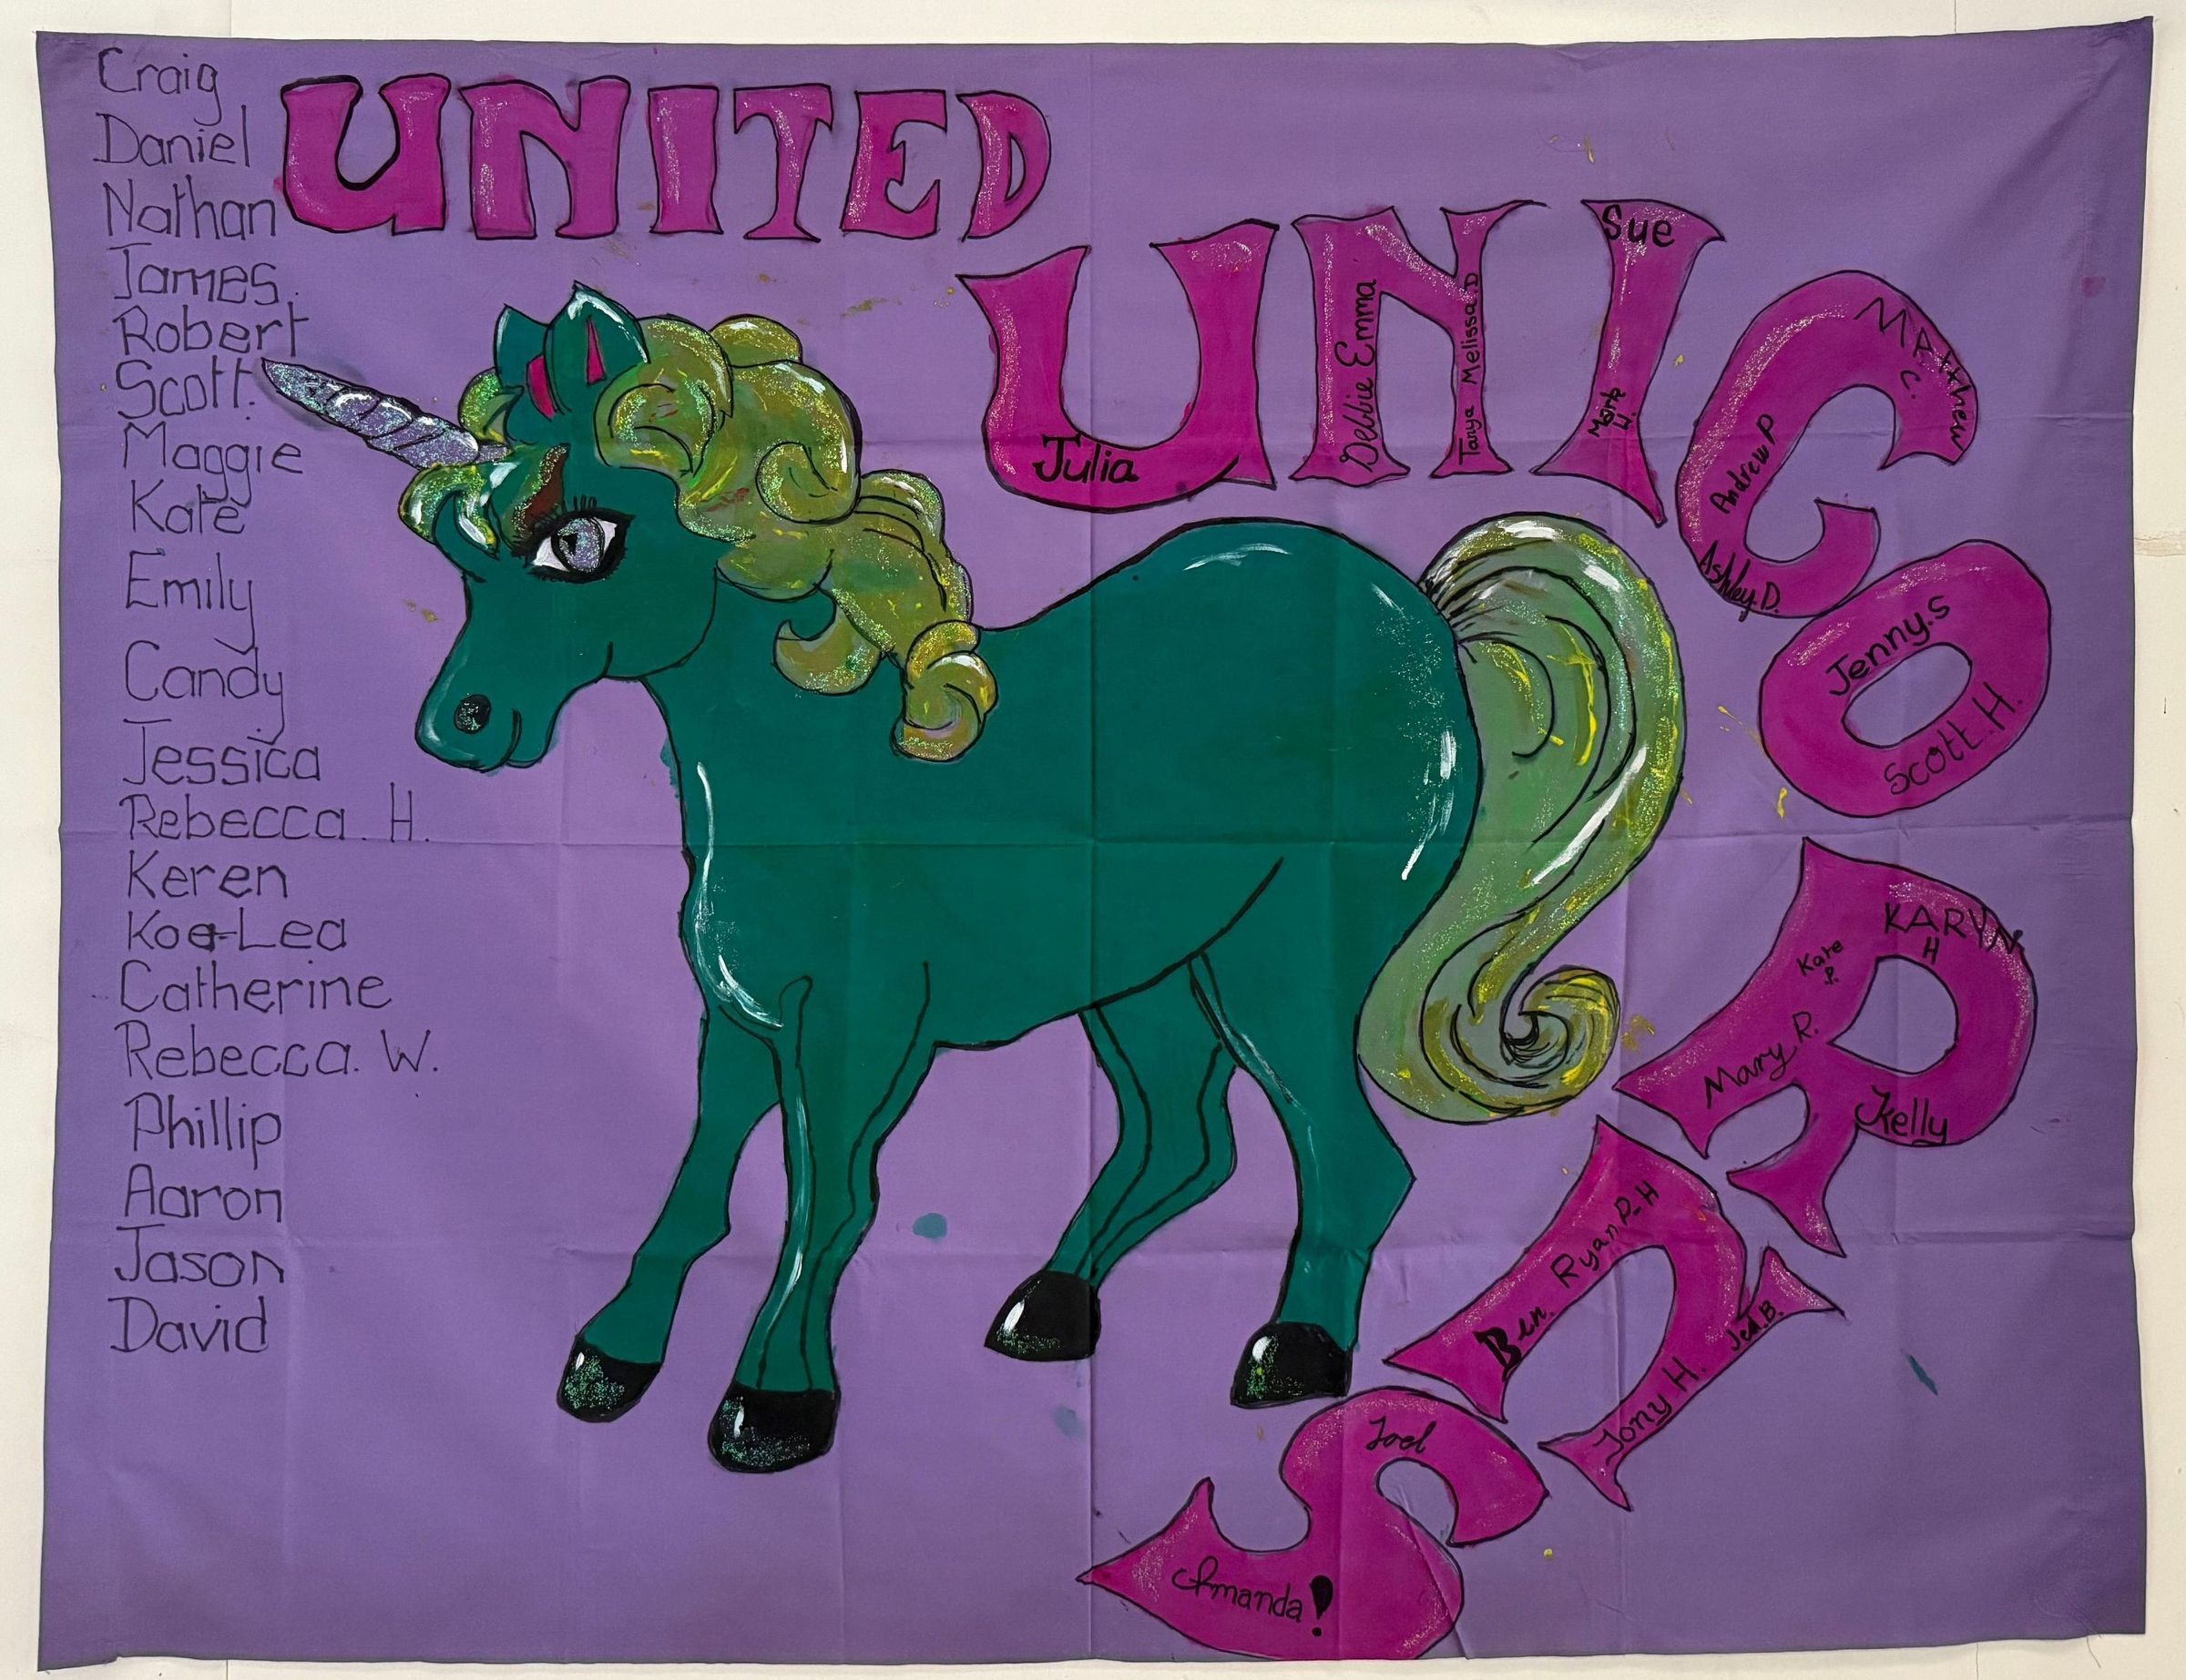 UNITED
UNICORNS
Craig
Daniel
Nathan
James.
Robert
Scott.
Maggie
Kate
Emily
Candy
Jessica
Rebecca. H.
Keren
Koa-Lea
Catherine
Rebecca. W.
Phillip
Aaron
Jason
David
Julia
Debbie Emma
Tanya Melissa.D
Sue
Mark
W.
MATthew
C.
Andrew P
Ashley.D.
Jenny.S
Scott.H.
KARYN
H
Kate
P.
Mary R.
Kelly
Ben. Ryan P-H
Tony H. Jed.B.
Joel
Amanda!